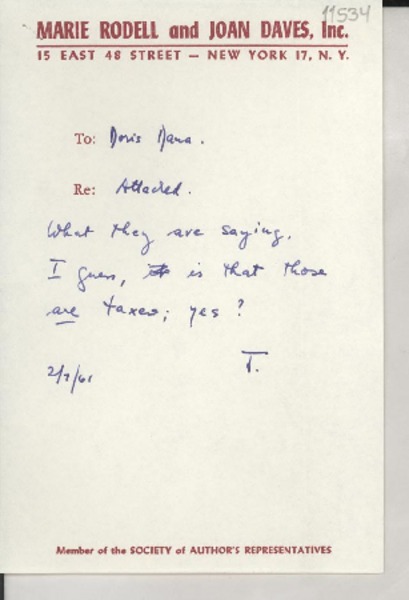 11534
MARIE RODELL and JOAN DAVES, Inc.
15 EAST 48 STREET — NEW YORK 17, N. Y.
To: Doris Dana.
Re: Attached.
What they are saying,
I guess, is that those
are taxes; yes?
J.
2/7/61
Member of the SOCIETY of AUTHOR'S REPRESENTATIVES